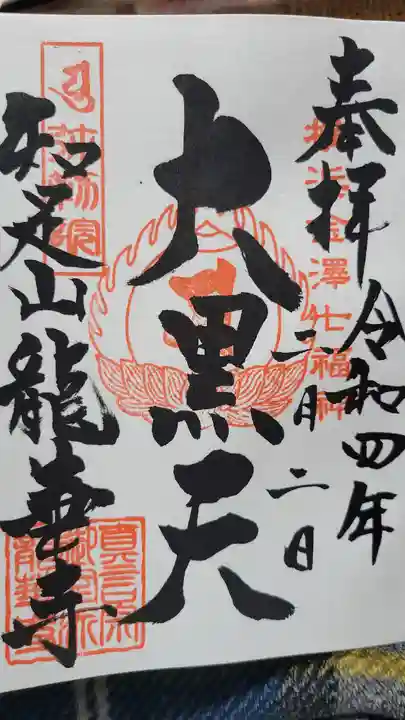 奉拝
令和四年
二月二日
横浜金澤七福神
大黒天
知足山龍華寺
真言宗
御室派
龍華寺